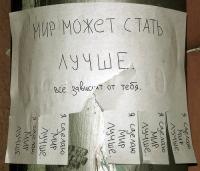 МИР МОЖЕТ СТАТЬ
ЛУЧШЕ.
всё зависит от тебя.
Я сделаю
МИР
ЛУЧШЕ
Я сделаю
МИР
ЛУЧШЕ
Я сделаю
МИР
ЛУЧШЕ
Я сделаю
МИР
ЛУЧШЕ
Я сделаю
МИР
ЛУЧШЕ